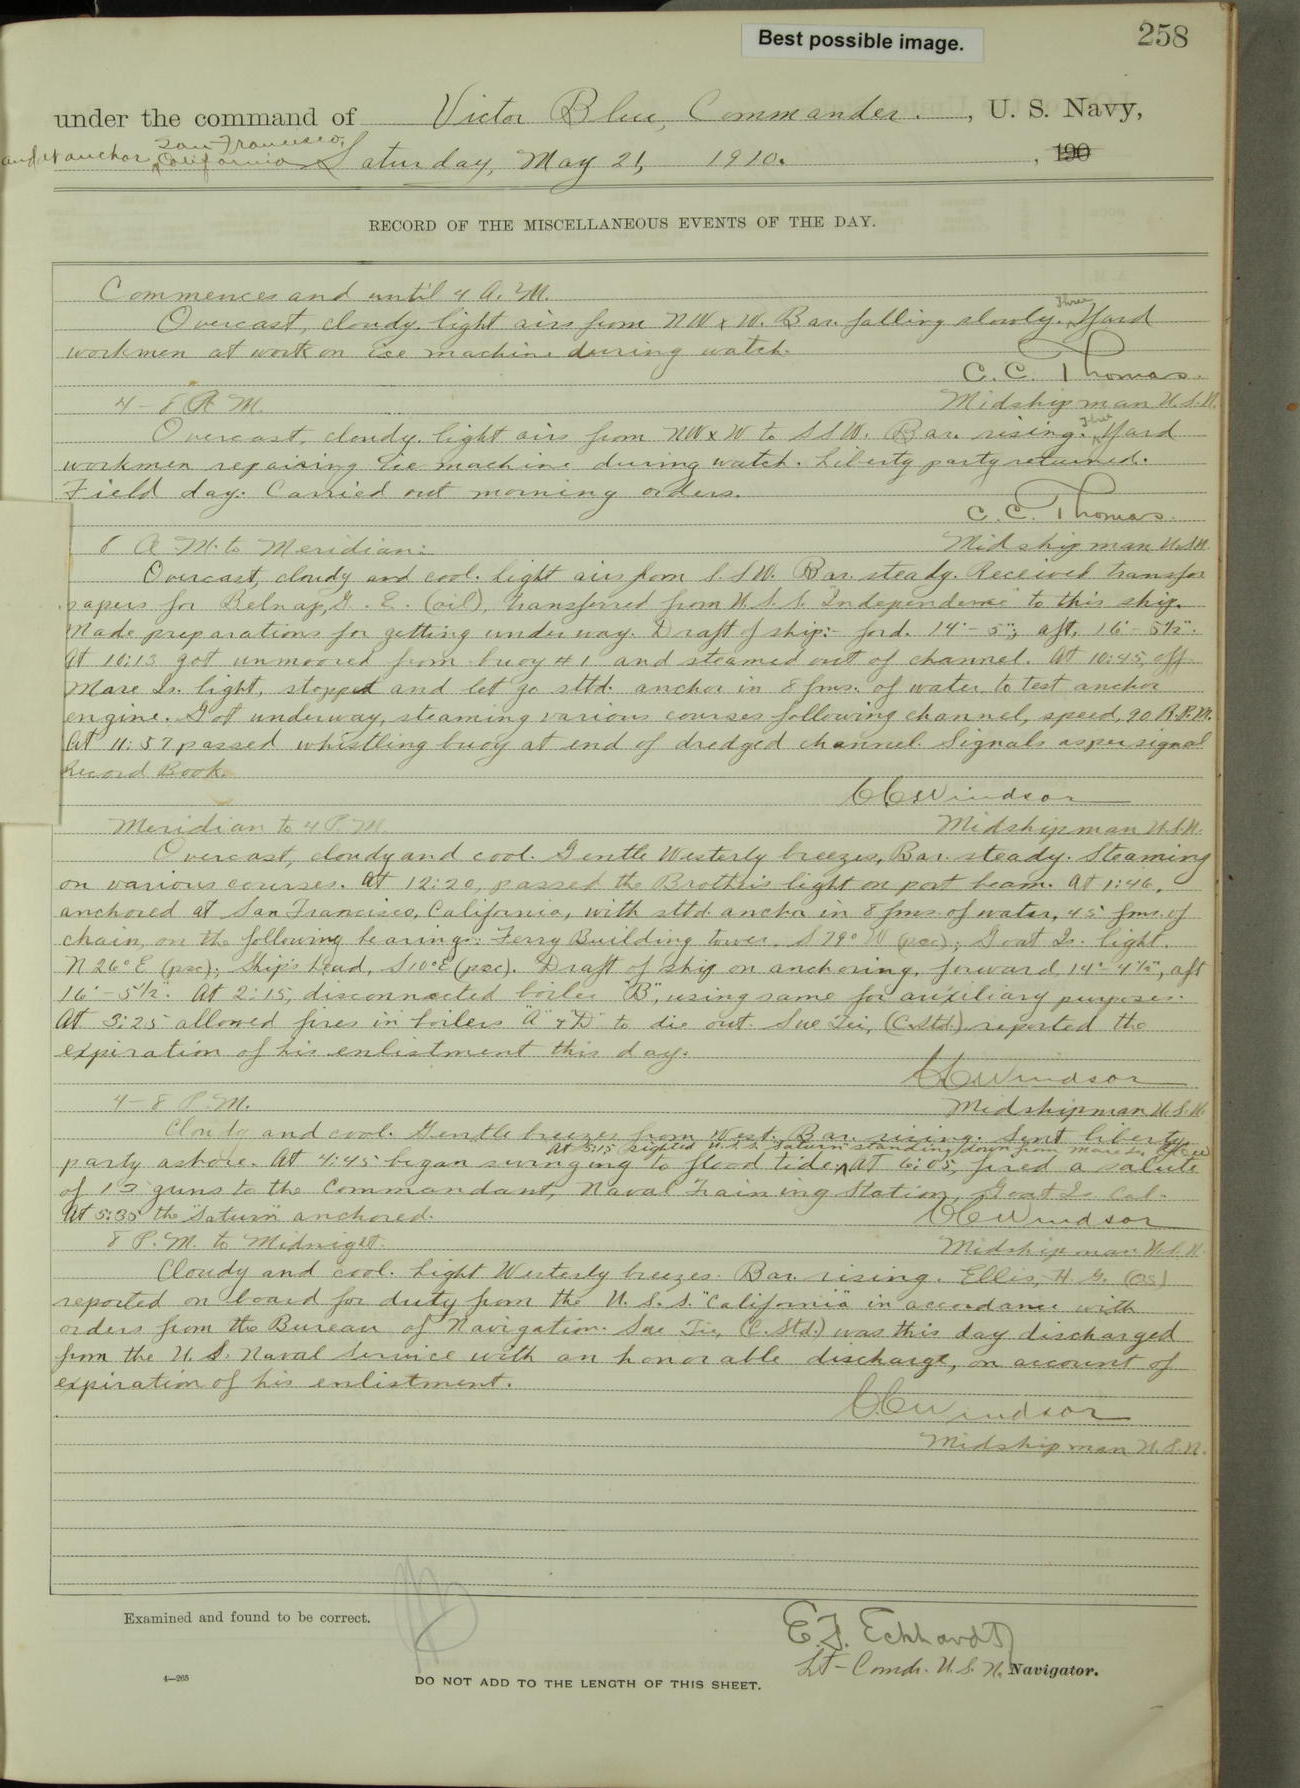 Best possible image.
258
under the command of Victor Blue, Commander. , U. S. Navy,
and at anchor, San Francisco, California Saturday, May 21, 1910. , 190
RECORD OF THE MISCELLANEOUS EVENTS OF THE DAY.
Commences and until 4 A. M.
Overcast, cloudy. light airs from NW x W. Bar. falling slowly. Three Yard
workmen at work on ice machine during watch.
C. C. Thomas.
4 - 8 A. M. Midshipman U.S.N.
Overcast, cloudy. light airs from NW x W to SSW. Bar. rising. Three Yard
workmen repairing ice machine during watch. Liberty party returned.
Field day. Carried out morning orders.
C. C. Thomas
8 A. M. to Meridian: Midshipman U.S.N.
Overcast, cloudy and cool. Light airs from S.S.W. Bar. steady. Received transfer
papers for Belnap, G. E. (oil), transferred from U.S.S. "Independence" to this ship.
Made preparations for getting under way. Draft of ship:- ford. 14'-5", aft, 16'-5½".
At 10:13 got unmoored from buoy #1 and steamed out of channel. At 10:45, off
Mare Is. light, stopped and let go stbd. anchor in 8 fms. of water to test anchor
engine. Got underway, steaming various courses following channel, speed, 90 R.P.M.
At 11:57 passed whistling buoy at end of dredged channel. Signals as per signal
Record Book.
CC Windsor
Meridian to 4 P. M. Midshipman U.S.N.
Overcast, cloudy and cool. Gentle Westerly breezes, Bar. steady. Steaming
on various courses. At 12:20, passed the Brothers light on port beam. At 1:46,
anchored at San Francisco, California, with stbd. anchor in 8 fms. of water, 45 fms. of
chain, on the following bearings: Ferry Building tower, S 79° W (psc); Goat Is. light.
N 26° E (psc); Ship's head, S 10° E (psc). Draft of ship on anchoring, forward, 14'-4½", aft
16'-5½". At 2:15, disconnected boiler "B", using same for auxiliary purposes.
At 3:25 allowed fires in boilers "A" & "D" to die out. Sue Tei, (C.Std.) reported the
expiration of his enlistment this day.
CC Windsor
4 - 8 P. M. Midshipman U.S.N.
Cloudy and cool. Gentle breezes from West. Bar. rising. Sent liberty
At 5:15 sighted U.S.S. Saturn standing down from Mare Is.
party ashore. At 4:45 began swinging to flood tide. At 6:05, fired a salute
of 13 guns to the Commandant, Naval Training Station, Goat Is. Cal.
At 5:35 the "Saturn" anchored. CC Windsor
8 P. M. to Midnight. Midshipman U.S.N.
Cloudy and cool. Light Westerly breezes. Bar. rising. Ellis, H. G. (OS)
reported on board for duty from the U. S. S. "California" in accordance with
orders from the Bureau of Navigation. Sue Tie, (C. Std.) was this day discharged
from the U. S. Naval Service with an honorable discharge, on account of
expiration of his enlistment.
CC Windsor
Midshipman U.S.N.
Examined and found to be correct.
E. F. Eckhardt
Lt-Comdr. U. S. N. Navigator.
4—265
DO NOT ADD TO THE LENGTH OF THIS SHEET.